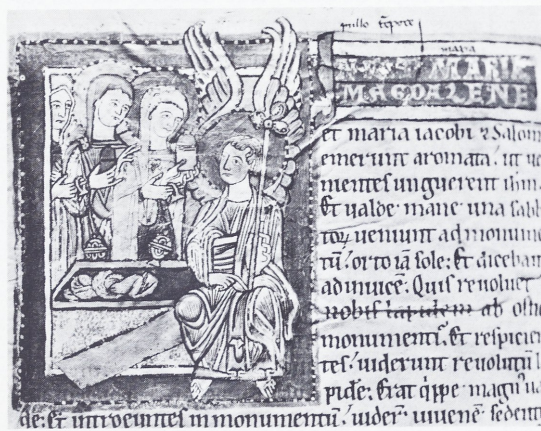 maria
MARIE
MAGDALENE
et maria iacobi ⁊ Salom
emerunt aromata. ut ue
mentes unguerent
Et ualde mane una sabb
toꝝ ueniunt ad monume
tū. orto iā sole. Et diceban
adinuicē. Quis reuoluet
nobis lapidem ab ostio
monumenti. Et respicien
tes. uiderunt reuolutū l
pidē. Erat q̇ppe magn᷒ ua
de. Et introeuntes in monumentū. uider̄ iuuenē sedentē